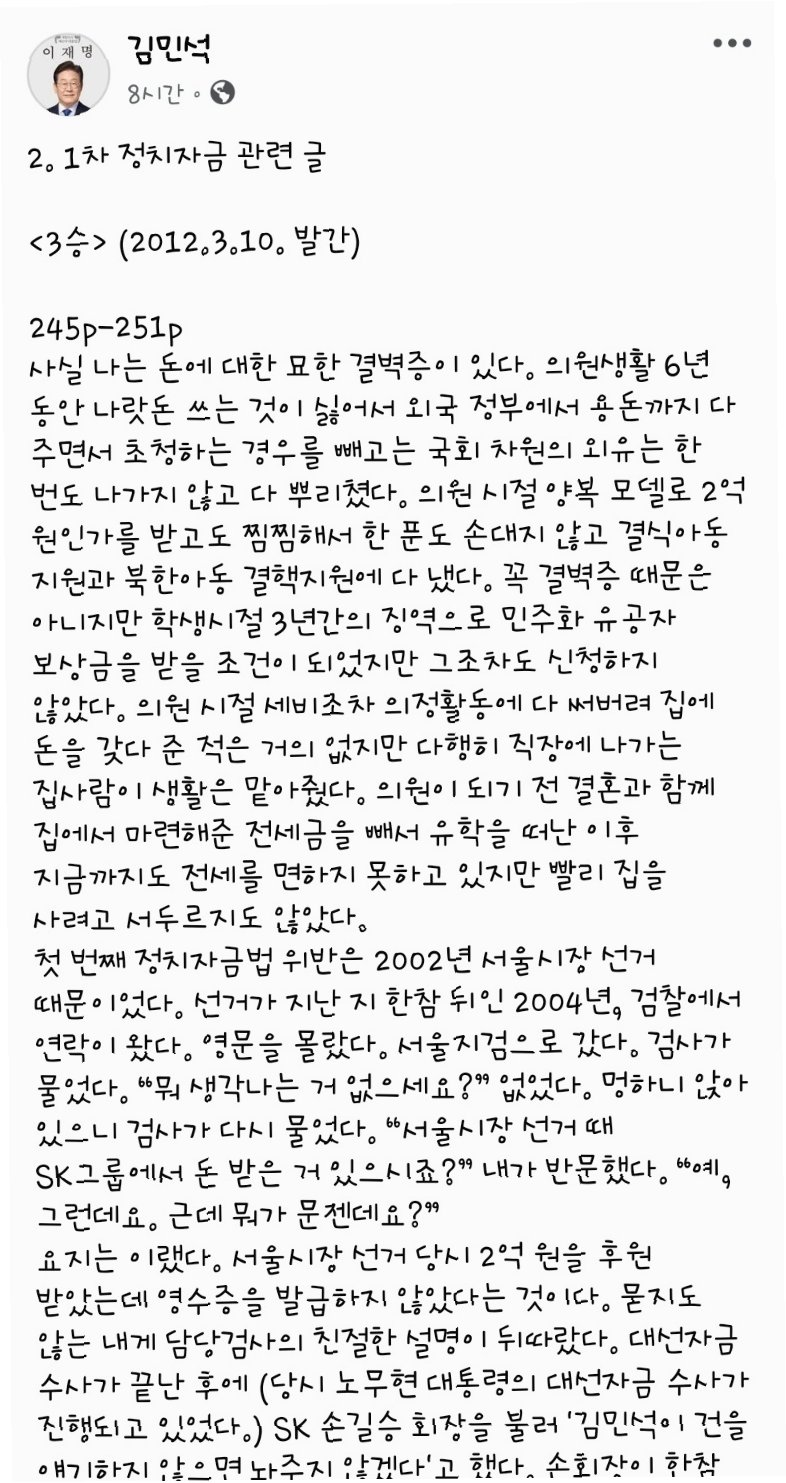 이 재 명
김민석
8시간 ·
2. 1차 정치자금 관련 글
<3승> (2012.3.10. 발간)
245p-251p
사실 나는 돈에 대한 묘한 결벽증이 있다. 의원생활 6년
동안 나랏돈 쓰는 것이 싫어서 외국 정부에서 용돈까지 다
주면서 초청하는 경우를 빼고는 국회 차원의 외유는 한
번도 나가지 않고 다 뿌리쳤다. 의원 시절 양복 모델로 2억
원인가를 받고도 찜찜해서 한 푼도 손대지 않고 결식아동
지원과 북한아동 결핵지원에 다 냈다. 꼭 결벽증 때문은
아니지만 학생시절 3년간의 징역으로 민주화 유공자
보상금을 받을 조건이 되었지만 그조차도 신청하지
않았다. 의원 시절 세비조차 의정활동에 다 써버려 집에
돈을 갖다 준 적은 거의 없지만 다행히 직장에 나가는
집사람이 생활은 맡아줬다. 의원이 되기 전 결혼과 함께
집에서 마련해준 전세금을 빼서 유학을 떠난 이후
지금까지도 전세를 면하지 못하고 있지만 빨리 집을
사려고 서두르지도 않았다.
첫 번째 정치자금법 위반은 2002년 서울시장 선거
때문이었다. 선거가 지난 지 한참 뒤인 2004년, 검찰에서
연락이 왔다. 영문을 몰랐다. 서울지검으로 갔다. 검사가
물었다. “뭐 생각나는 거 없으세요?” 없었다. 멍하니 앉아
있으니 검사가 다시 물었다. “서울시장 선거 때
SK그룹에서 돈 받은 거 있으시죠?” 내가 반문했다. “예,
그런데요. 근데 뭐가 문젠데요?”
요지는 이랬다. 서울시장 선거 당시 2억 원을 후원
받았는데 영수증을 발급하지 않았다는 것이다. 묻지도
않는 내게 담당검사의 친절한 설명이 뒤따랐다. 대선자금
수사가 끝난 후에 (당시 노무현 대통령의 대선자금 수사가
진행되고 있었다.) SK 손길승 회장을 불러 '김민석이 건을
얘기하지 않으면 놔주지 않겠다'고 했다. 손회장이 한참